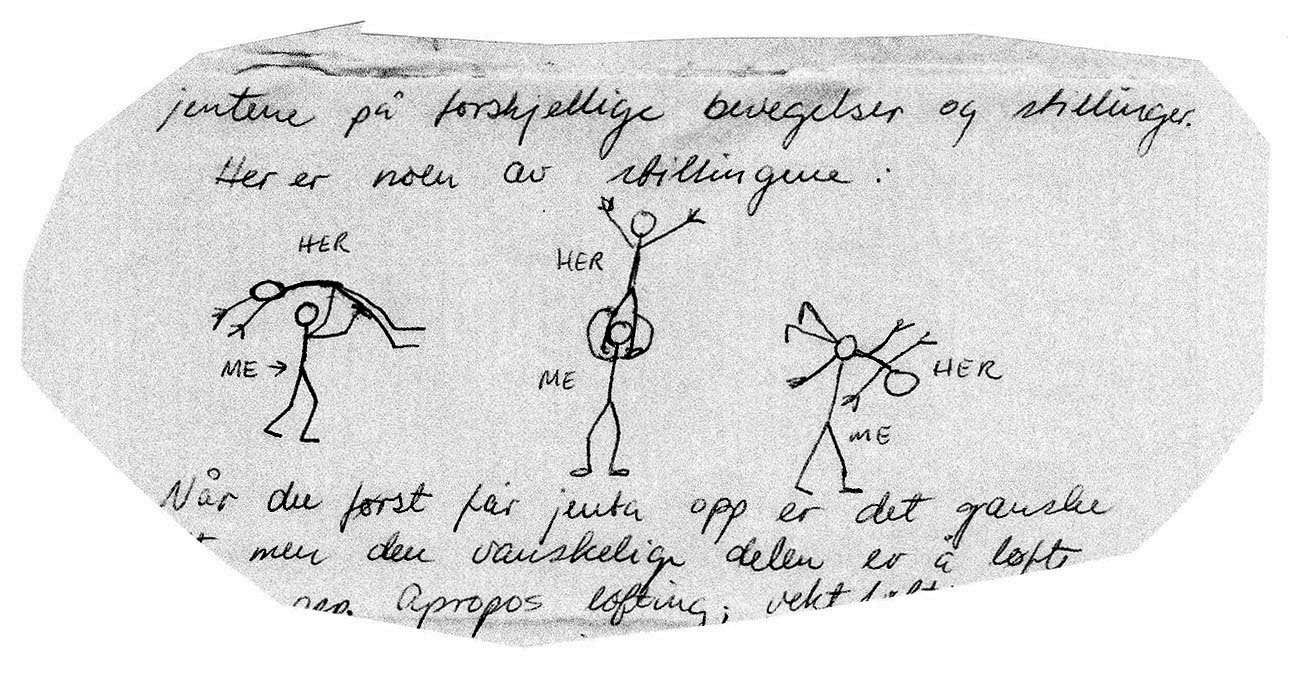 jentene på forskjellige bevegelser og stillinger.
Her er noen av stillingene :
HER
HER
ME →
ME
HER
ME
Når du først får jenta opp er det ganske
men den vanskelige delen er å løfte
opp. Apropos løfting; vekt